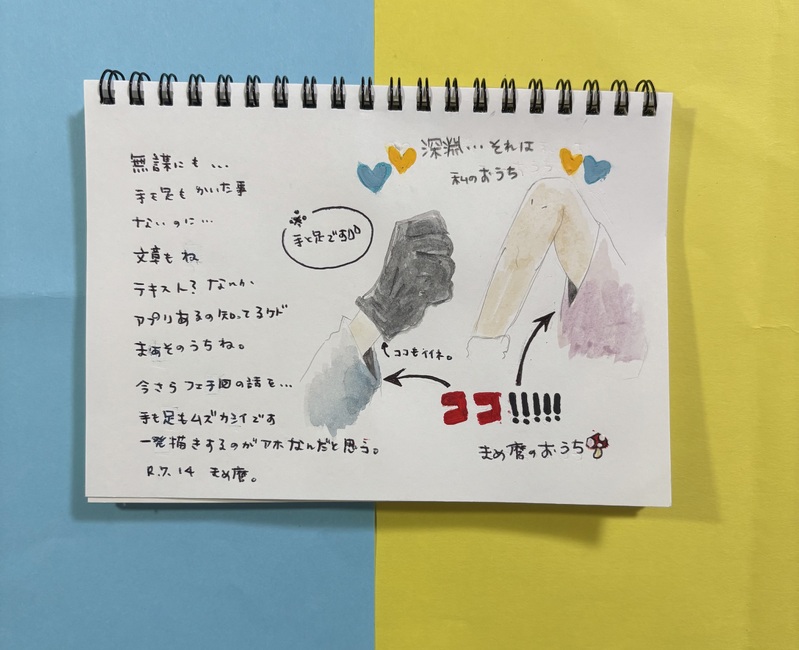 無謀にも...
手も足もかいた事
ないのに...
文章もね
テキスト?なんか
アプリあるの知ってるケド
まぁそのうちね。
今さらフェチ回の話を...
手も足もムズカシイです
一発描きするのがアホなんだと思う。
R.7.14 まめ磨。
深淵...それは
私のおうち
手と足です
ココもイイネ。
ココ!!!!!
まめ磨のおうち